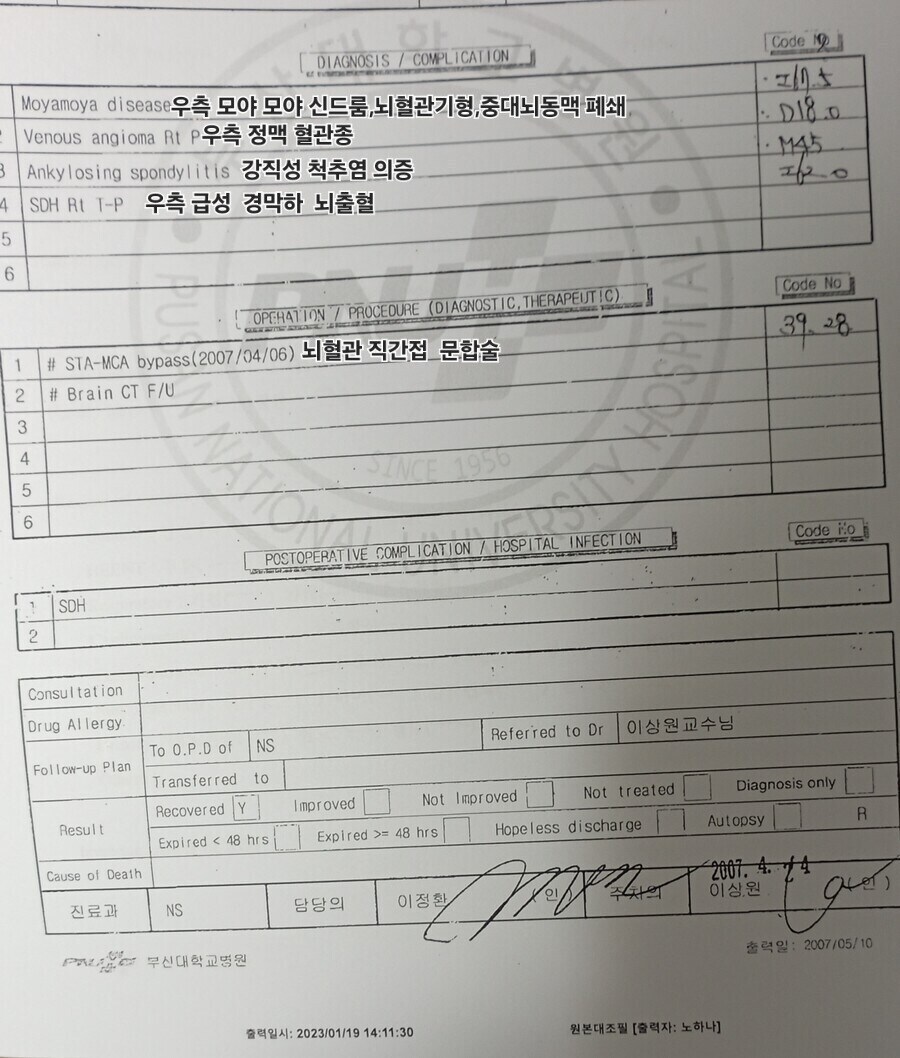 DIAGNOSIS / COMPLICATION
Code No
1 Moyamoya disease우측 모야 모야 신드룸,뇌혈관기형,중대뇌동맥 폐쇄 I67.5
2 Venous angioma Rt P우측 정맥 혈관종 D18.0
3 Ankylosing spondylitis 강직성 척추염 의증 M45
4 SDH Rt T-P 우측 급성 경막하 뇌출혈
5
6
OPERATION / PROCEDURE (DIAGNOSTIC,THERAPEUTIC)
Code No
1 # STA-MCA bypass(2007/04/06) 뇌혈관 직간접 문합술 39.28
2 # Brain CT F/U
3
4
5
6
PUSAN NATIONAL UNIVERSITY HOSPITAL
SINCE 1956
POSTOPERATIVE COMPLICATION / HOSPITAL INFECTION
Code No
1 SDH
2
Consultation
Drug Allergy
Follow-up Plan
To O.P.D of NS Referred to Dr 이상원교수님
Transferred to
Result
Recovered Y Improved Not Improved Not treated Diagnosis only
Expired < 48 hrs Expired >= 48 hrs Hopeless discharge Autopsy R
Cause of Death
2007. 4. 24
진료과 NS 담당의 이정환 (인) 주치의 이상원 (인)
PNUH 부산대학교병원
출력일: 2007/05/10
출력일시: 2023/01/19 14:11:30
원본대조필 [출력자: 노하나]